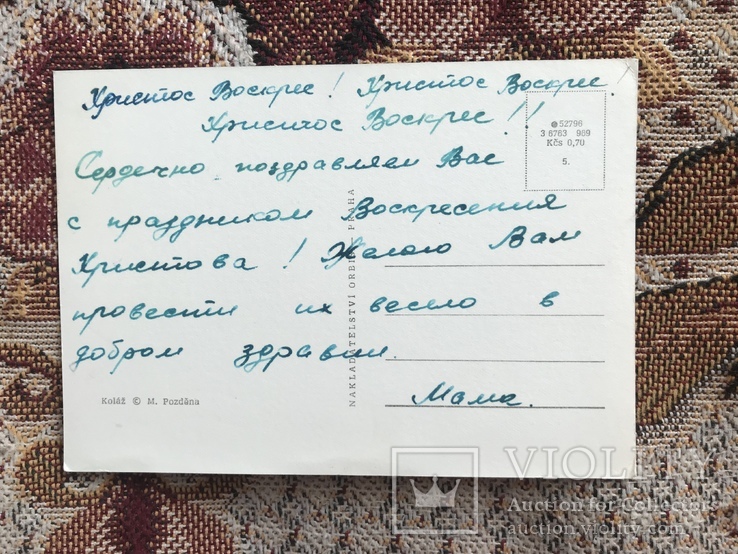 Христос Воскрес! Христос Воскрес!
Христос Воскрес!!
Сердечно поздравляем Вас
с праздником Воскресения
Христова! Желаю Вам
провести их весело в
добром здравии.
Мама.
52796
3 6763 989
Kčs 0,70
5.
NAKLADATELSTVÍ ORBIS, PRAHA
Koláž © M. Pozděna
VIOLITY
Auction for Collectors
auction.violity.com